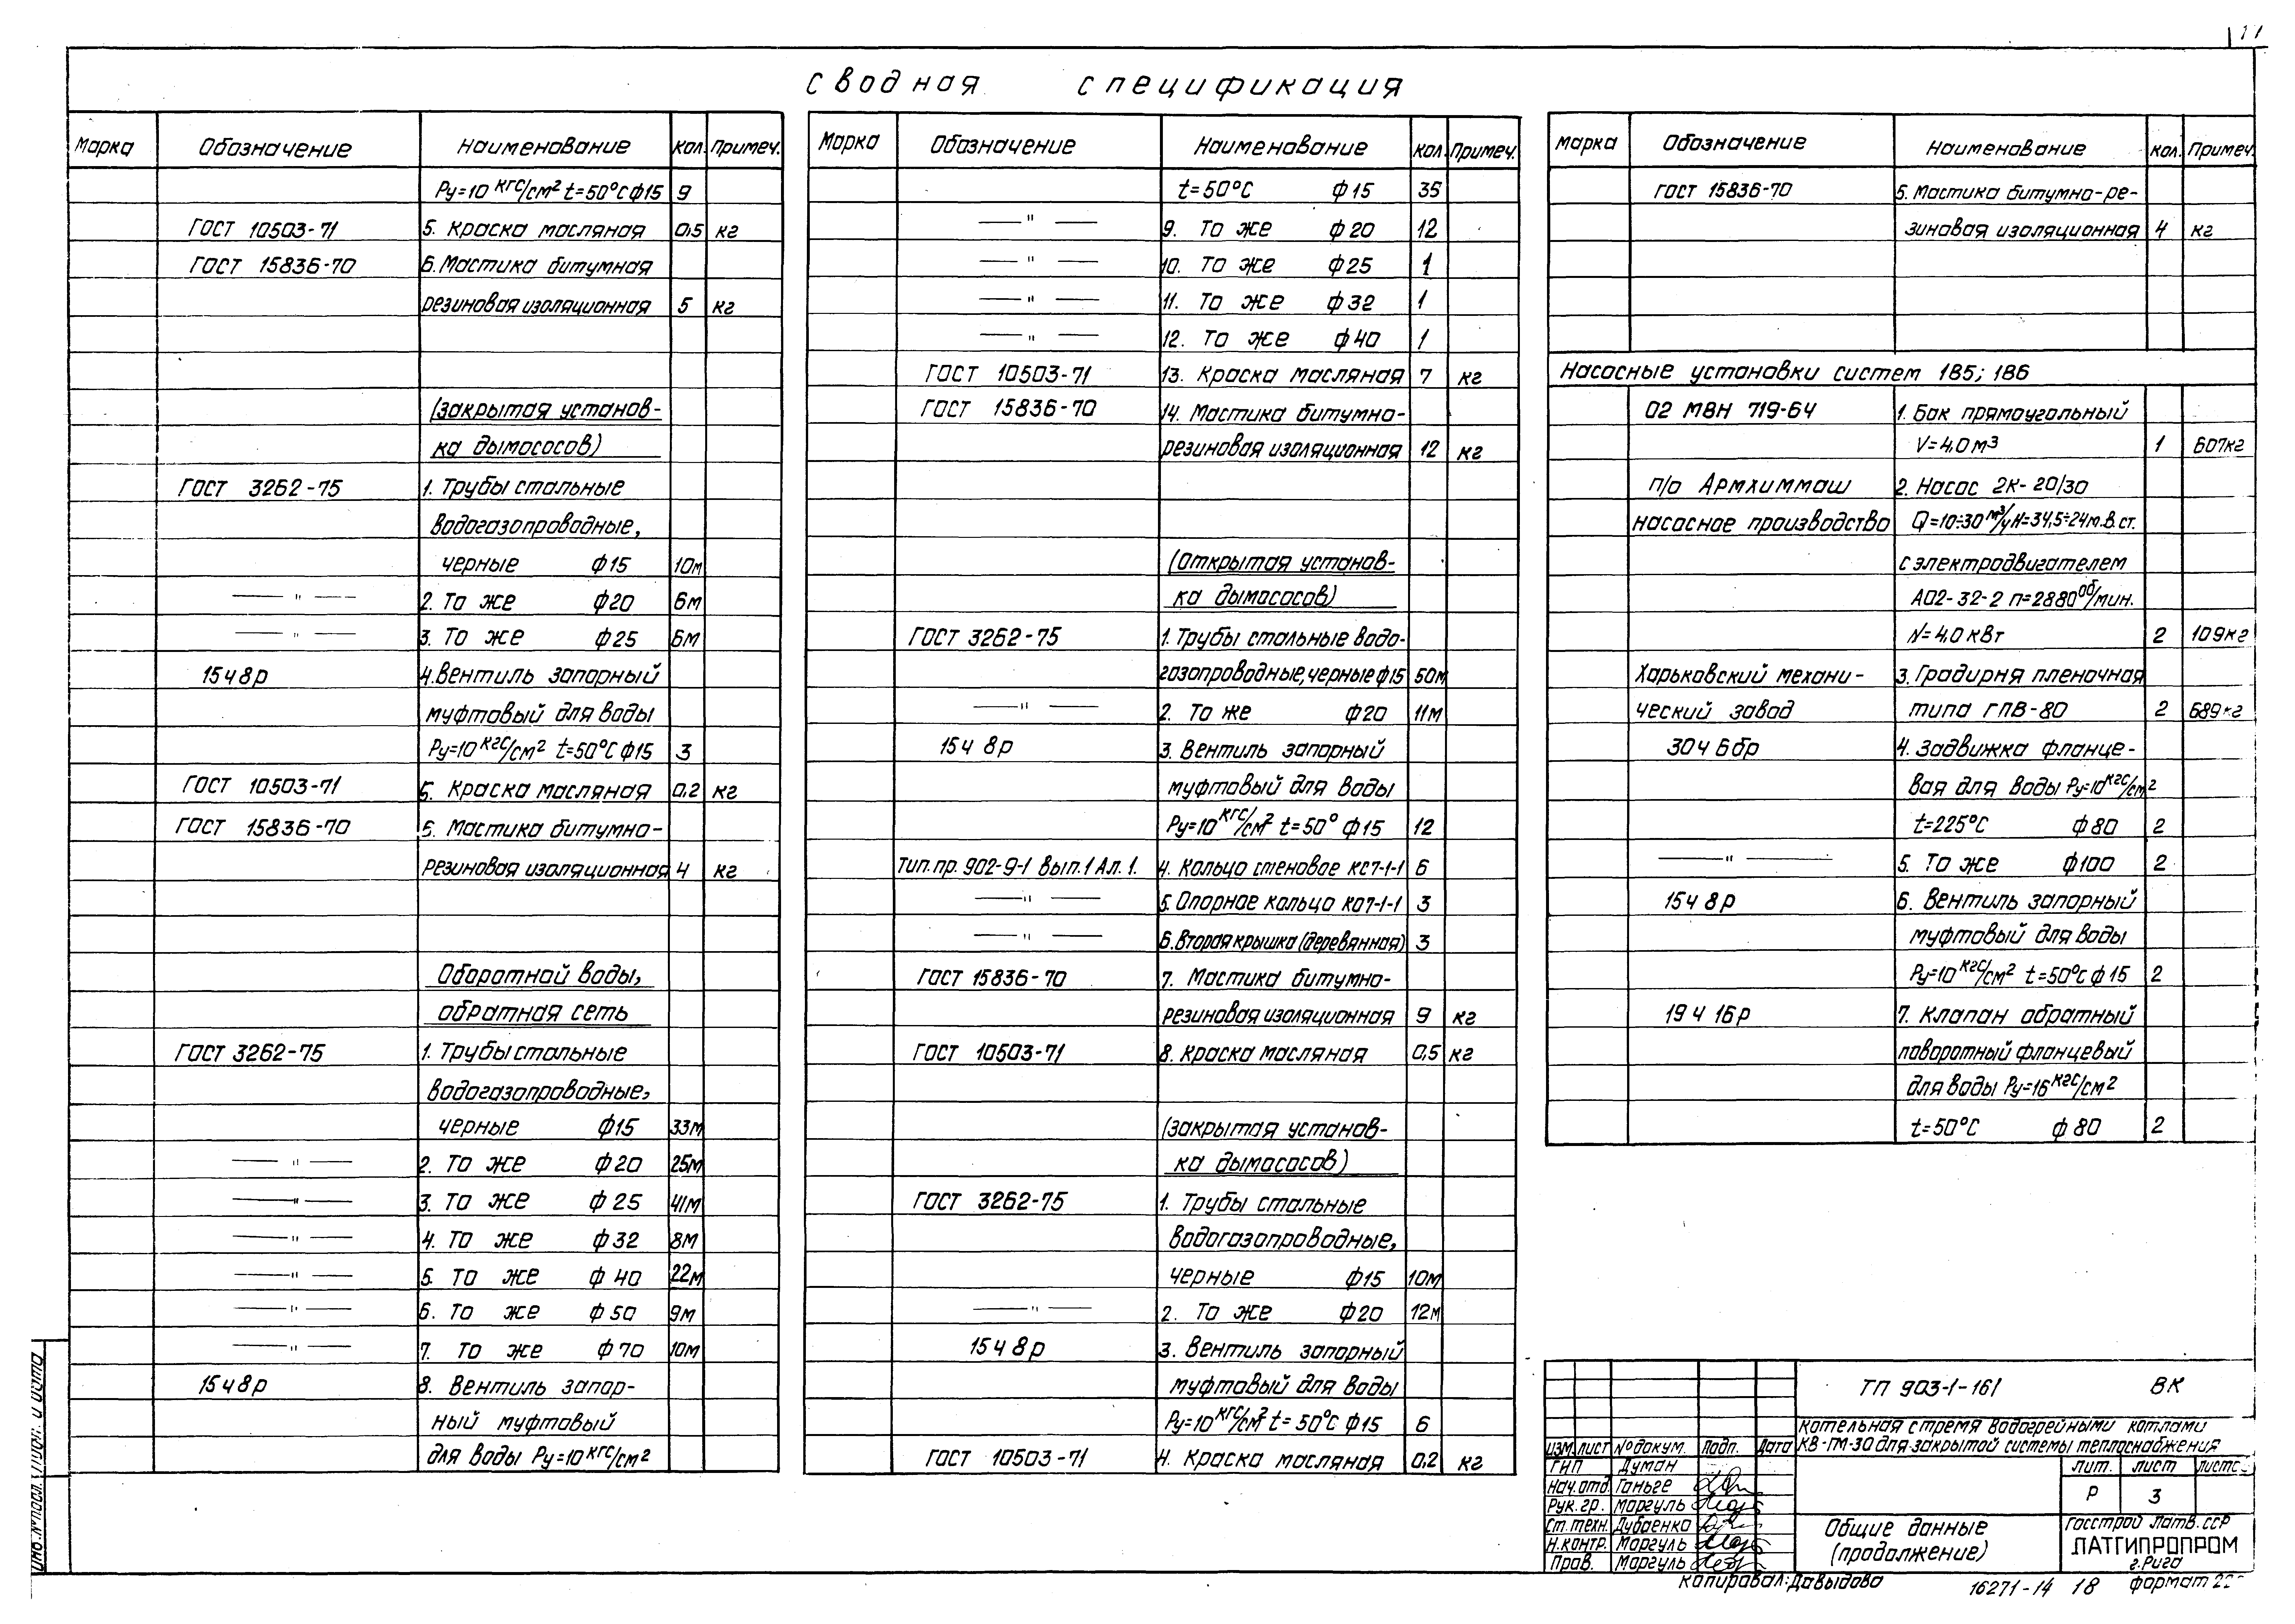 сводная спецификация
Марка Обозначение Наименование кол. Примеч.
Ру=10 кгс/см² t=50°С ф15 9
ГОСТ 10503-71 5. Краска масляная 0,5 кг
ГОСТ 15836-70 6. Мастика битумная
резиновая изоляционная 5 кг
(закрытая установ-
ка дымососов)
ГОСТ 3262-75 1. Трубы стальные
водогазопроводные,
черные ф15 10м
—〃— 2. То же ф20 6м
—〃— 3. То же ф25 6м
15ч8р 4. Вентиль запорный
муфтовый для воды
Ру=10 кгс/см² t=50°С ф15 3
ГОСТ 10503-71 5. Краска масляная 0,2 кг
ГОСТ 15836-70 6. Мастика битумно-
резиновая изоляционная 4 кг
Оборотной воды,
обратная сеть
ГОСТ 3262-75 1. Трубы стальные
водогазопроводные,
черные ф15 33м
—〃— 2. То же ф20 25м
—〃— 3. То же ф25 41м
—〃— 4. То же ф32 8м
—〃— 5. То же ф40 22м
—〃— 6. То же ф50 9м
—〃— 7. То же ф70 10м
15ч8р 8. Вентиль запор-
ный муфтовый
для воды Ру=10 кгс/см²
Марка Обозначение Наименование кол. Примеч.
t=50°С ф15 35
—〃— 9. То же ф20 12
—〃— 10. То же ф25 1
—〃— 11. То же ф32 1
—〃— 12. То же ф40 1
ГОСТ 10503-71 13. Краска масляная 7 кг
ГОСТ 15836-70 14. Мастика битумно-
резиновая изоляционная 12 кг
(Открытая установ-
ка дымососов)
ГОСТ 3262-75 1. Трубы стальные водо-
газопроводные, черные ф15 50м
—〃— 2. То же ф20 11м
15ч 8р 3. Вентиль запорный
муфтовый для воды
Ру=10 кгс/см² t=50° ф15 12
Тип. пр. 902-9-1 Вып.1 Ал.1. 4. Кольцо стеновое кс7-1-1 6
—〃— 5. Опорное кольцо ко7-1-1 3
—〃— 6. Вторая крышка (деревянная) 3
ГОСТ 15836-70 7. Мастика битумно-
резиновая изоляционная 9 кг
ГОСТ 10503-71 8. Краска масляная 0,5 кг
(закрытая установ-
ка дымососов)
ГОСТ 3262-75 1. Трубы стальные
водогазопроводные,
черные ф15 10м
—〃— 2. То же ф20 12м
15ч 8р 3. Вентиль запорный
муфтовый для воды
Ру=10 кгс/см² t=50°С ф15 6
ГОСТ 10503-71 4. Краска масляная 0,2 кг
Марка Обозначение Наименование кол. Примеч.
ГОСТ 15836-70 5. Мастика битумно-ре-
зиновая изоляционная 4 кг
Насосные установки систем 185; 186
02 МВН 719-64 1. Бак прямоугольный
V=4,0м³ 1 607кг
п/о Армхиммаш 2. Насос 2К-20/30
насосное производство Q=10÷30 м³/ч Н=34,5÷24м.в.ст.
с электродвигателем
АО2-32-2 п=2880 об/мин.
N=4,0 кВт 2 109кг
Харьковский механи- 3. Градирня пленочная
ческий завод типа ГПВ-80 2 689кг
30ч 6бр 4. Задвижка фланце-
вая для воды Ру=10 кгс/см²
t=225°С ф80 2
—〃— 5. То же ф100 2
15ч 8р 6. Вентиль запорный
муфтовый для воды
Ру=10 кгс/см² t=50°С ф15 2
19ч 16р 7. Клапан обратный
поворотный фланцевый
для воды Ру=16 кгс/см²
t=50°С ф80 2
ТП 903-1-161 ВК
котельная с тремя водогрейными котлами
КВ-ГМ-30 для закрытой системы теплоснабжения
изм. лист №докум. Подп. Дата
ГИП Думан
Нач.отд. Ганьге
Рук.гр. Маргуль
Ст.техн. Дубаенко
Н.контр. Маргуль
Пров. Маргуль
лит. лист
Р 3
Общие данные
(продолжение)
Госстрой Латв.ССР
ЛАТГИПРОПРОМ
г.Рига
копировал: Давыдова 16271-14 18 формат